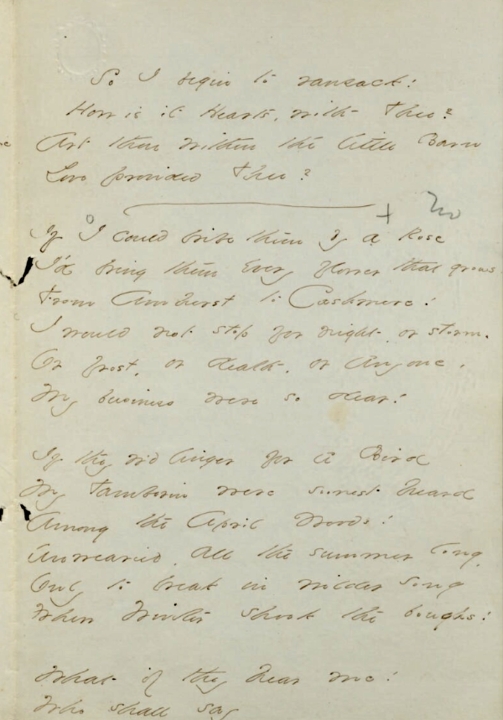 So I begin to ransack!
How is it Hearts, with Thee?
Art thou within the little Barn
Love provided Thee?
+ No
If I could bribe them by a Rose
I'd bring them Every flower that grows
From Amherst to Cashmere!
I would not stop for night, or storm.
Or frost, or death, or Anyone.
My business were so dear!
If they w'd linger for a Bird
My Tamborin were soonest heard
Among the April Woods!
Unwearied, All the summer long,
Only to break in wilder song
When Winter shook the boughs!
What if they hear me!
Who shall say